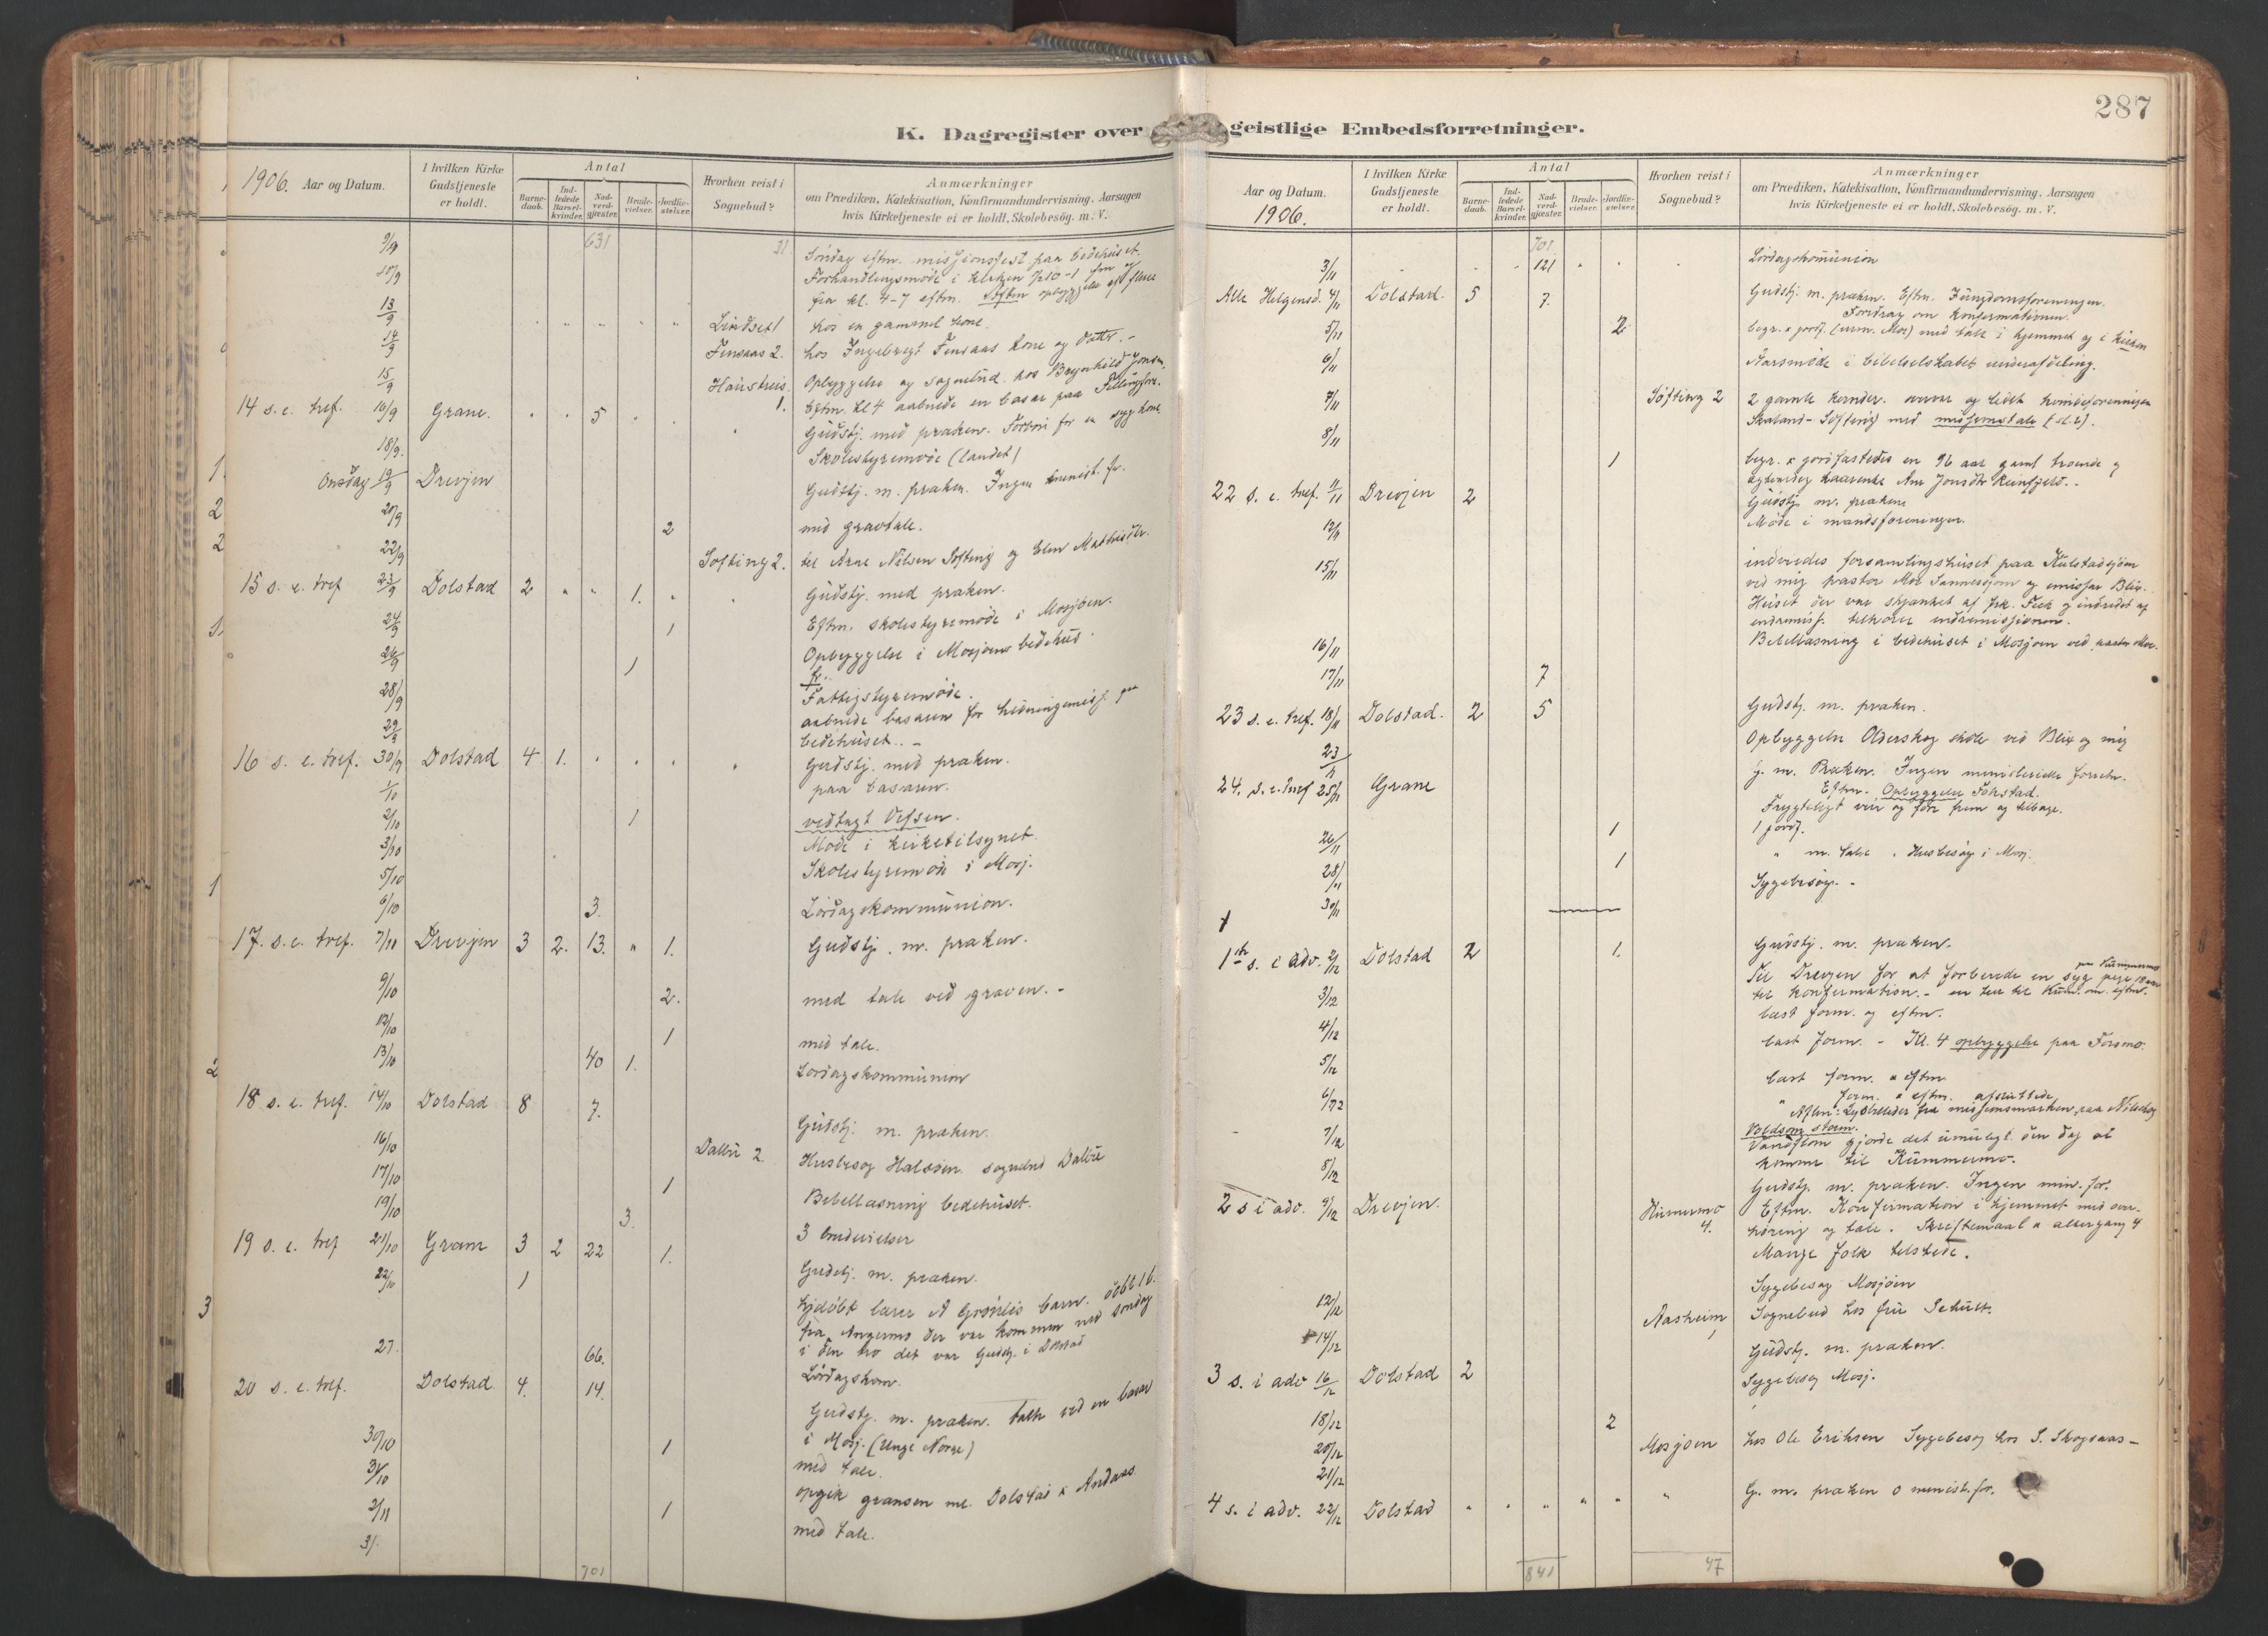 287
K. Dagregister over geistlige Embedsforretninger.
1906. Aar og Datum.
I hvilken Kirke Gudstjeneste er holdt.
Antal
Barnedaab.
Indledede Barselkvinder.
Nadverdgjæster.
Brudevielser.
Jordfæstelser.
Hvorhen reist i Sognebud?
Anmærkninger
om Prædiken, Katekisation, Konfirmandundervisning, Aarsagen
hvis Kirketjeneste ei er holdt, Skolebesøg. m. V.
9/9 631 31 Søndag eftm. missionsfest paa bedehuset.
10/9 Forhandlingsmøde i kirken
fra kl. 4-7 eftm.
13/9 Lindset 1 hos en gammel kone.
14/9 Fensaas 2. hos Ingebregt Fensaas kone og datter. -
15/9 Opbyggelse og sognebud hos Brynhild
1. Eftm. kl 4 aabnede en basar paa
14 s. e. tref. 16/9 Grane. 5 Gudstj. med præken. Forbøn for en syg kone
18/9. Skolestyremøde (landet)
Onsdag 19/9 Drevjen Gudstj. m. præken. Ingen minist. fr.
20/9 2 med gravtale.
22/9 Søfting 2. til Arne Nilsen Søfting og Elen
15 s. e. tref 23/9 Dolstad 2 1. Gudstj. med præken.
Eftm. skolestyremøde i Mosjøen.
24/9 1 Opbyggelse i Mosjøens bedehus.
26/9 1
28/9 Fattigstyremøde.
29/9 aabnede basaren for hedningemis. paa
bedehuset. -
16 s. e. tref. 30/9 Dolstad 4 1. Gudstj. med præken.
1/10 paa basaren.
2/10 1 vedtagt Vefsen.
3/10 Møde i kirketilsynet.
5/10 Skolestyremøde i Mosj.
6/10 3. Lørdagskommunion.
17. s. e. tref. 7/10 Drevjen 3 2. 13. " 1. Gudstj. m. præken.
9/10 2. med tale ved graven. -
12/10 1 med tale.
13/10 40 1. Lørdagskommunion
18 s. e. tref. 14/10 Dolstad 8 7. Gudstj. m. præken.
16/10 2. Husbesøg Halsøen. sognebud
17/10 1 Bibellæsning bedehuset.
19/10 3. 3 brudevielser
19 s. e. tref 21/10 Grane 3 2 22 1. Gudstj. m. præken.
22/10 1 hjdøbt lærer A Grønlis barn.
fra Angermo der var kommen ned søndag
i den tro det var Gudstj. i Dolstad
27. 66. Lørdagskom.
20 s. e. tref. Dolstad 4. 14. Gudstj. m. præken. talte ved en basar
i Mosj. (Unge Norge)
30/10 1 med tale.
31/10 opgik grænsen ml. Dolstad &
2/11 1 med tale.
31
701
Aar og Datum.
1906.
I hvilken Kirke Gudstjeneste er holdt.
Antal
Barnedaab.
Indledede Barselkvinder.
Nadverdgjæster.
Brudevielser.
Jordfæstelser.
Hvorhen reist i Sognebud?
Anmærkninger
om Prædiken, Katekisation, Konfirmandundervisning, Aarsagen
hvis Kirketjeneste ei er holdt, Skolebesøg. m. V.
701
3/11 121 Lørdagskommunion
Alle Helgensd. 4/11 Dolstad. 5 7. Gudstj. m. præken. Eftm. Ungdomsforeningen.
Foredrag om konfirmationen.
5/11 2 med tale i hjemmet og i kirken
6/11 Aarsmøde i bibelselskabets underafdeling.
7/11 Søfting 2 2 gamle kvinder.
Skaland-Søfting) med missionstale
8/11 1 begr. & jordfæstedes en 96 aar gaml troende og
22 s. e. tref. 11/11 Drevjen 2 Gudstj. m. præken
12/11 Møde i mandsforeningen.
15/11 indviedes forsamlingshuset paa Kulstadsjøen
ved mig pastor Moe Sannesjøen og emissær Blix.
Huset der var skjænket af frk. og indredet af
indremis. tilhører indremissionen.
16/11 Bibellæsning i bedehuset i Mosjøen ved pastor Moe.
17/11 7
23 s. e. tref. 18/11 Dolstad. 2 5 Gudstj. m. præken.
23/11 Opbyggelse Olderskog skole ved Blix og mig
24. s. e. tref 25/11 Grane G. m. Præken. Ingen ministerielle forretn.
Eftm. Opbyggelse
Frygteligt veir og føre frem og tilbage.
26/11 1 1 jordf.
28/11 1 " m. tale. Husbesøg i Mosj.
30/11 Sygebesøg. -
1ste s. i adv. 2/12 Dolstad 2 1. Gudstj. m. præken.
3/12 Til Drevjen for at forberede en syg pige
til konfirmation. -
4/12 læst form. og eftm.
5/12 læst form. - Kl. 4 opbyggelse paa Forsmo.
6/12 læst form. & eftm.
7/12 " form. & eftm. afsluttede
Voldsom storm.
8/12 Vandflom gjorde det umuligt den dag at
komme til Kummermo.
2 s i adv. 9/12 Drevjen. Gudstj. m. præken. Ingen min. for.
Kummermo 4. Eftm. Konfirmation i hjemmet med overhøring og tale. Skriftemaal & altergang 4
Mange folk tilstede.
12/12 Sygebesøg Mosjøen
14/12 Aasheim 1 Sognebud hos fru
3 s. i adv 16/12 Dolstad 2 Gudstj. m. præken.
18/12 2 Sygebesøg Mosj.
20/12 Mosjøen hos Ole Eriksen Sygebesøg hos S. Skogsaas -
21/12
4 s. i adv. 22/12 Dolstad G. m. præken 0 minist. for.
841 47